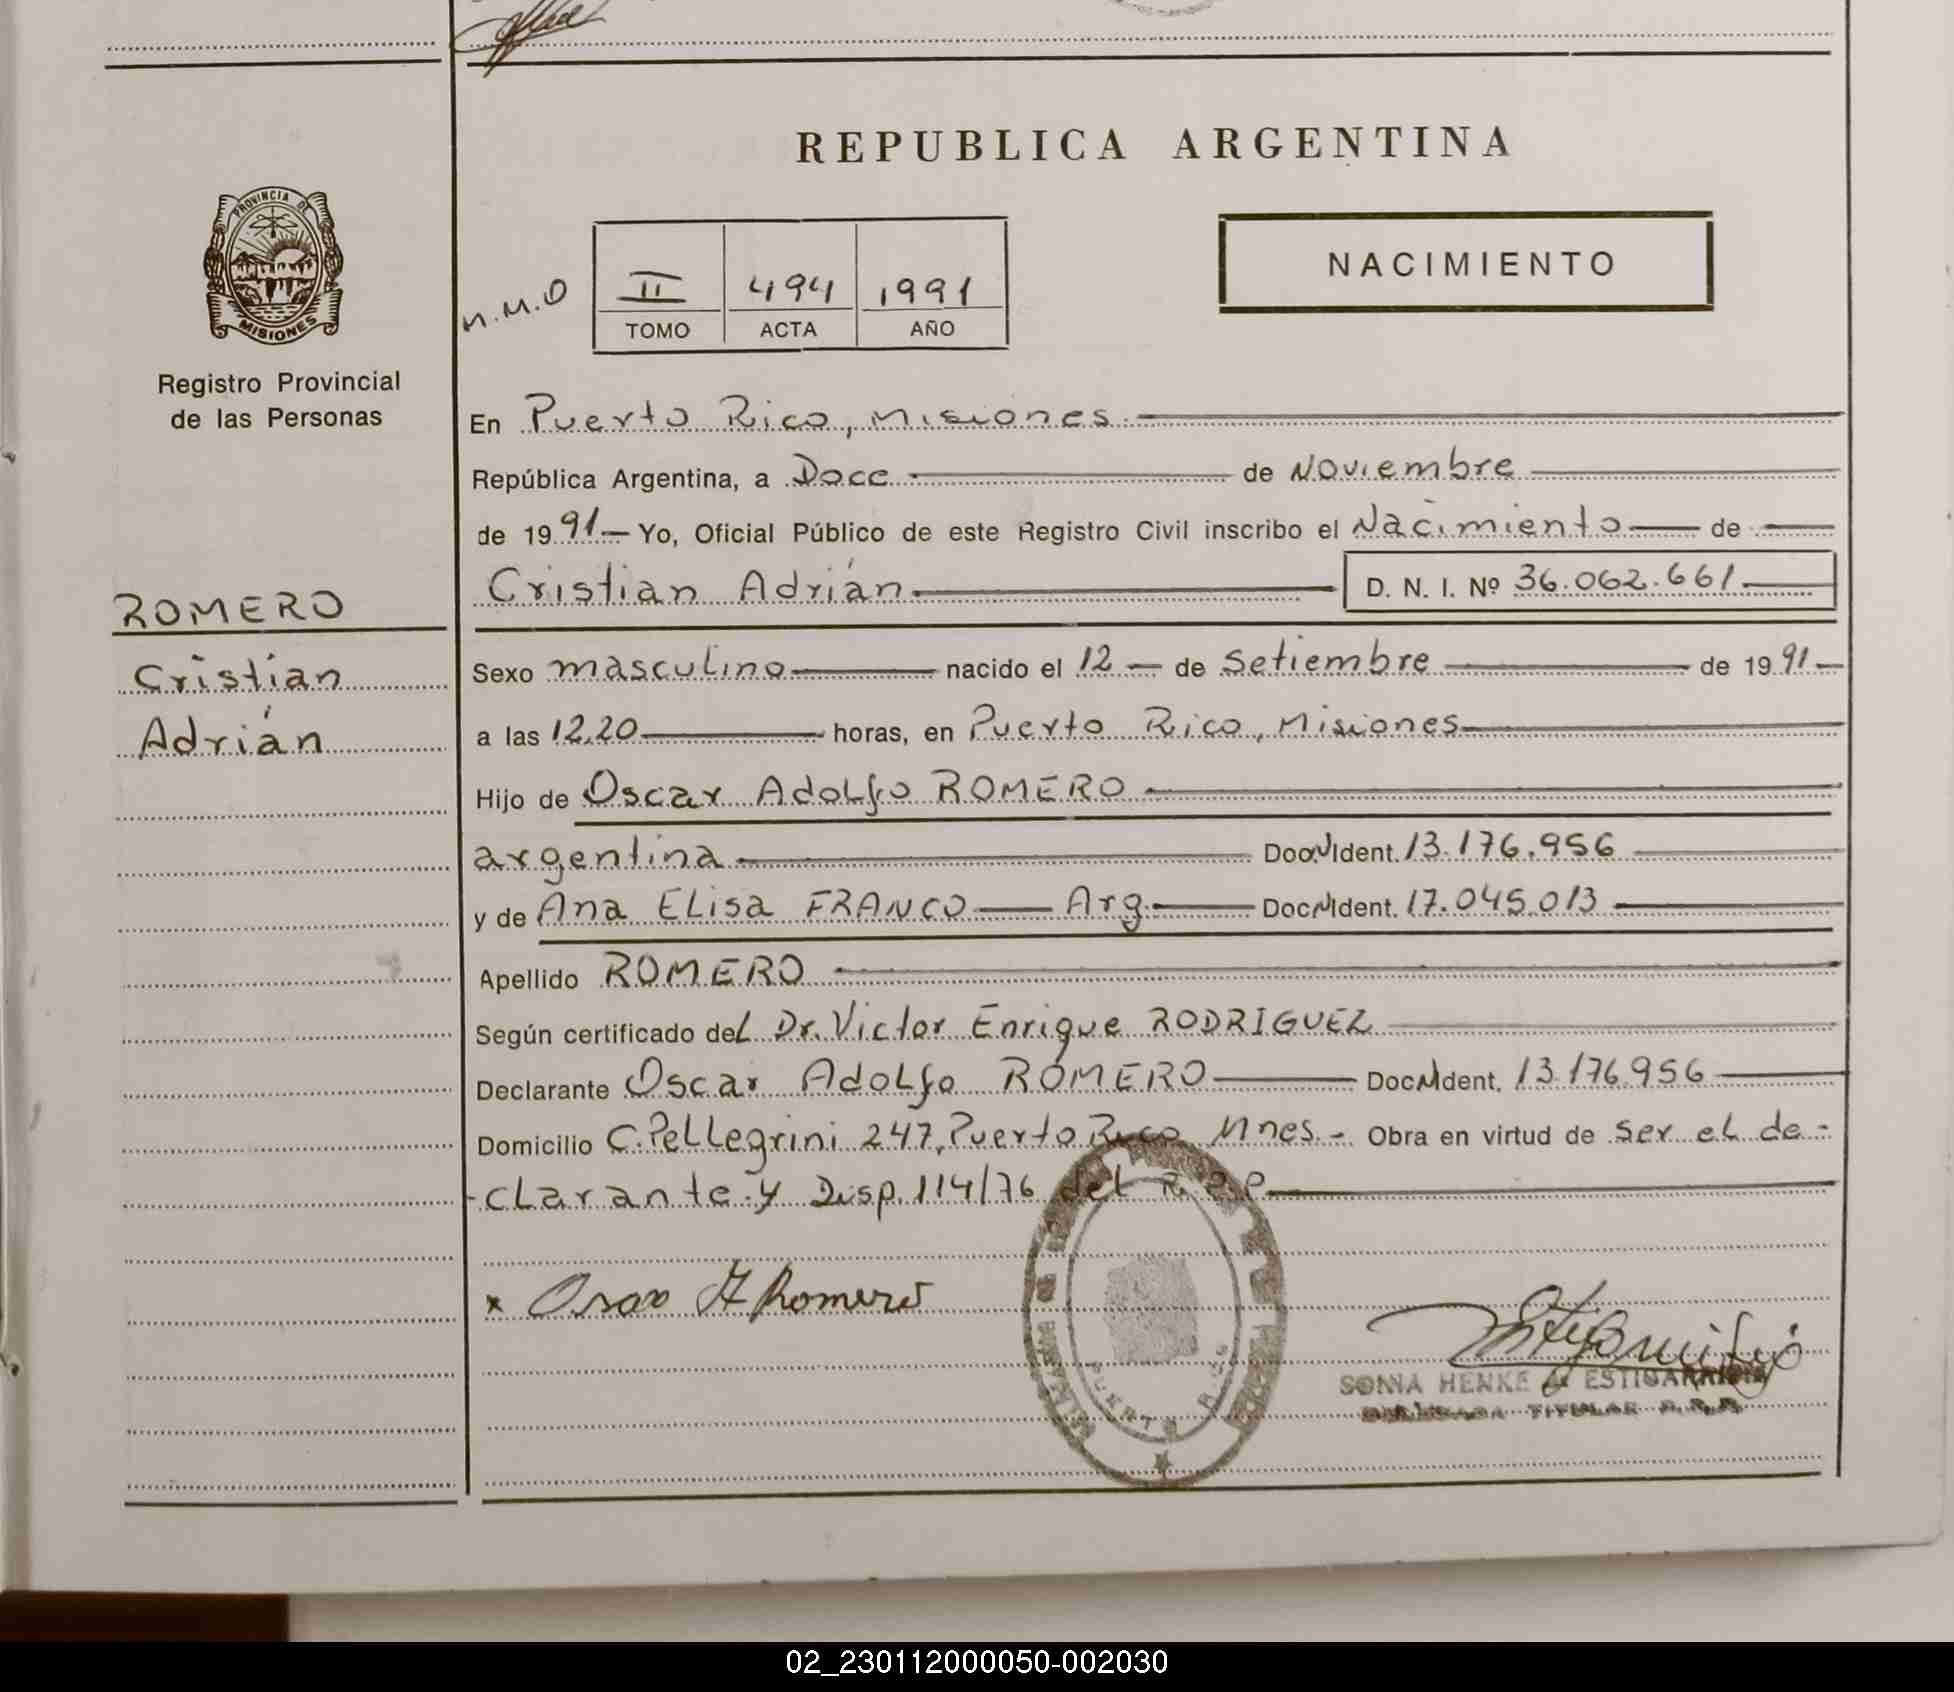 REPUBLICA ARGENTINA
PROVINCIA DE
MISIONES
Registro Provincial
de las Personas
M.M.O
II 494 1991
TOMO ACTA AÑO
NACIMIENTO
ROMERO
Cristian
Adrián
En Puerto Rico, Misiones
República Argentina, a Doce de Noviembre
de 1991 Yo, Oficial Público de este Registro Civil inscribo el Nacimiento de
Cristian Adrián D. N. I. Nº 36.062.661
Sexo masculino nacido el 12 de Setiembre de 1991
a las 12,20 horas, en Puerto Rico, Misiones
Hijo de Oscar Adolfo ROMERO
argentina Doc. Ident. 13.176.956
y de Ana Elisa FRANCO Arg. Doc. Ident. 17.045.013
Apellido ROMERO
Según certificado del Dr. Victor Enrique RODRIGUEZ
Declarante Oscar Adolfo ROMERO Doc. Ident. 13.176.956
Domicilio C. Pellegrini 247, Puerto Rico Mnes.- Obra en virtud de ser el de-
-clarante y Disp. 114/76 del R.P.P.
x Oscar A Romero
PUERTO RICO
SONIA HENKE de ESTIGARRIBIA
TITULAR R.P.P.
02_230112000050-002030